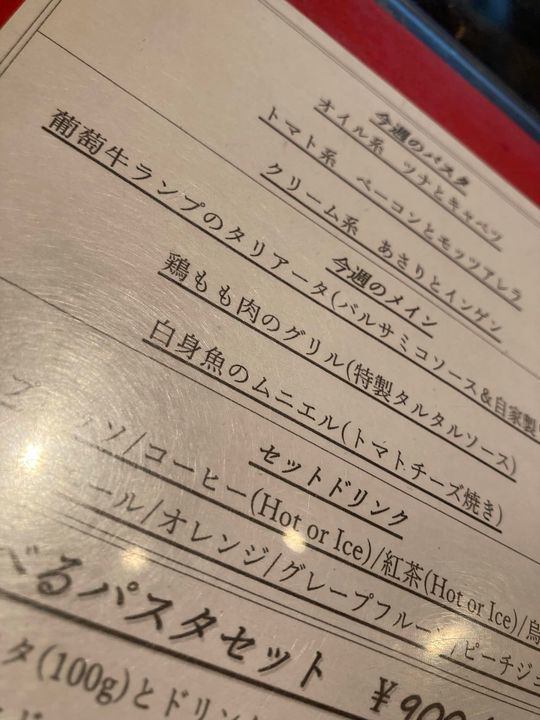 今週のパスタ
オイル系 ツナとキャベツ
トマト系 ベーコンとモッツアレラ
クリーム系 あさりとインゲン
今週のメイン
葡萄牛ランプのタリアータ(バルサミコソース&自家製
鶏もも肉のグリル(特製タルタルソース)
白身魚のムニエル(トマトチーズ焼き)
セットドリンク
/コーヒー(Hot or Ice)/紅茶(Hot or Ice)/烏
ール/オレンジ/グレープフルーツ/ピーチジュ
べるパスタセット ¥900
タ(100g)とドリン